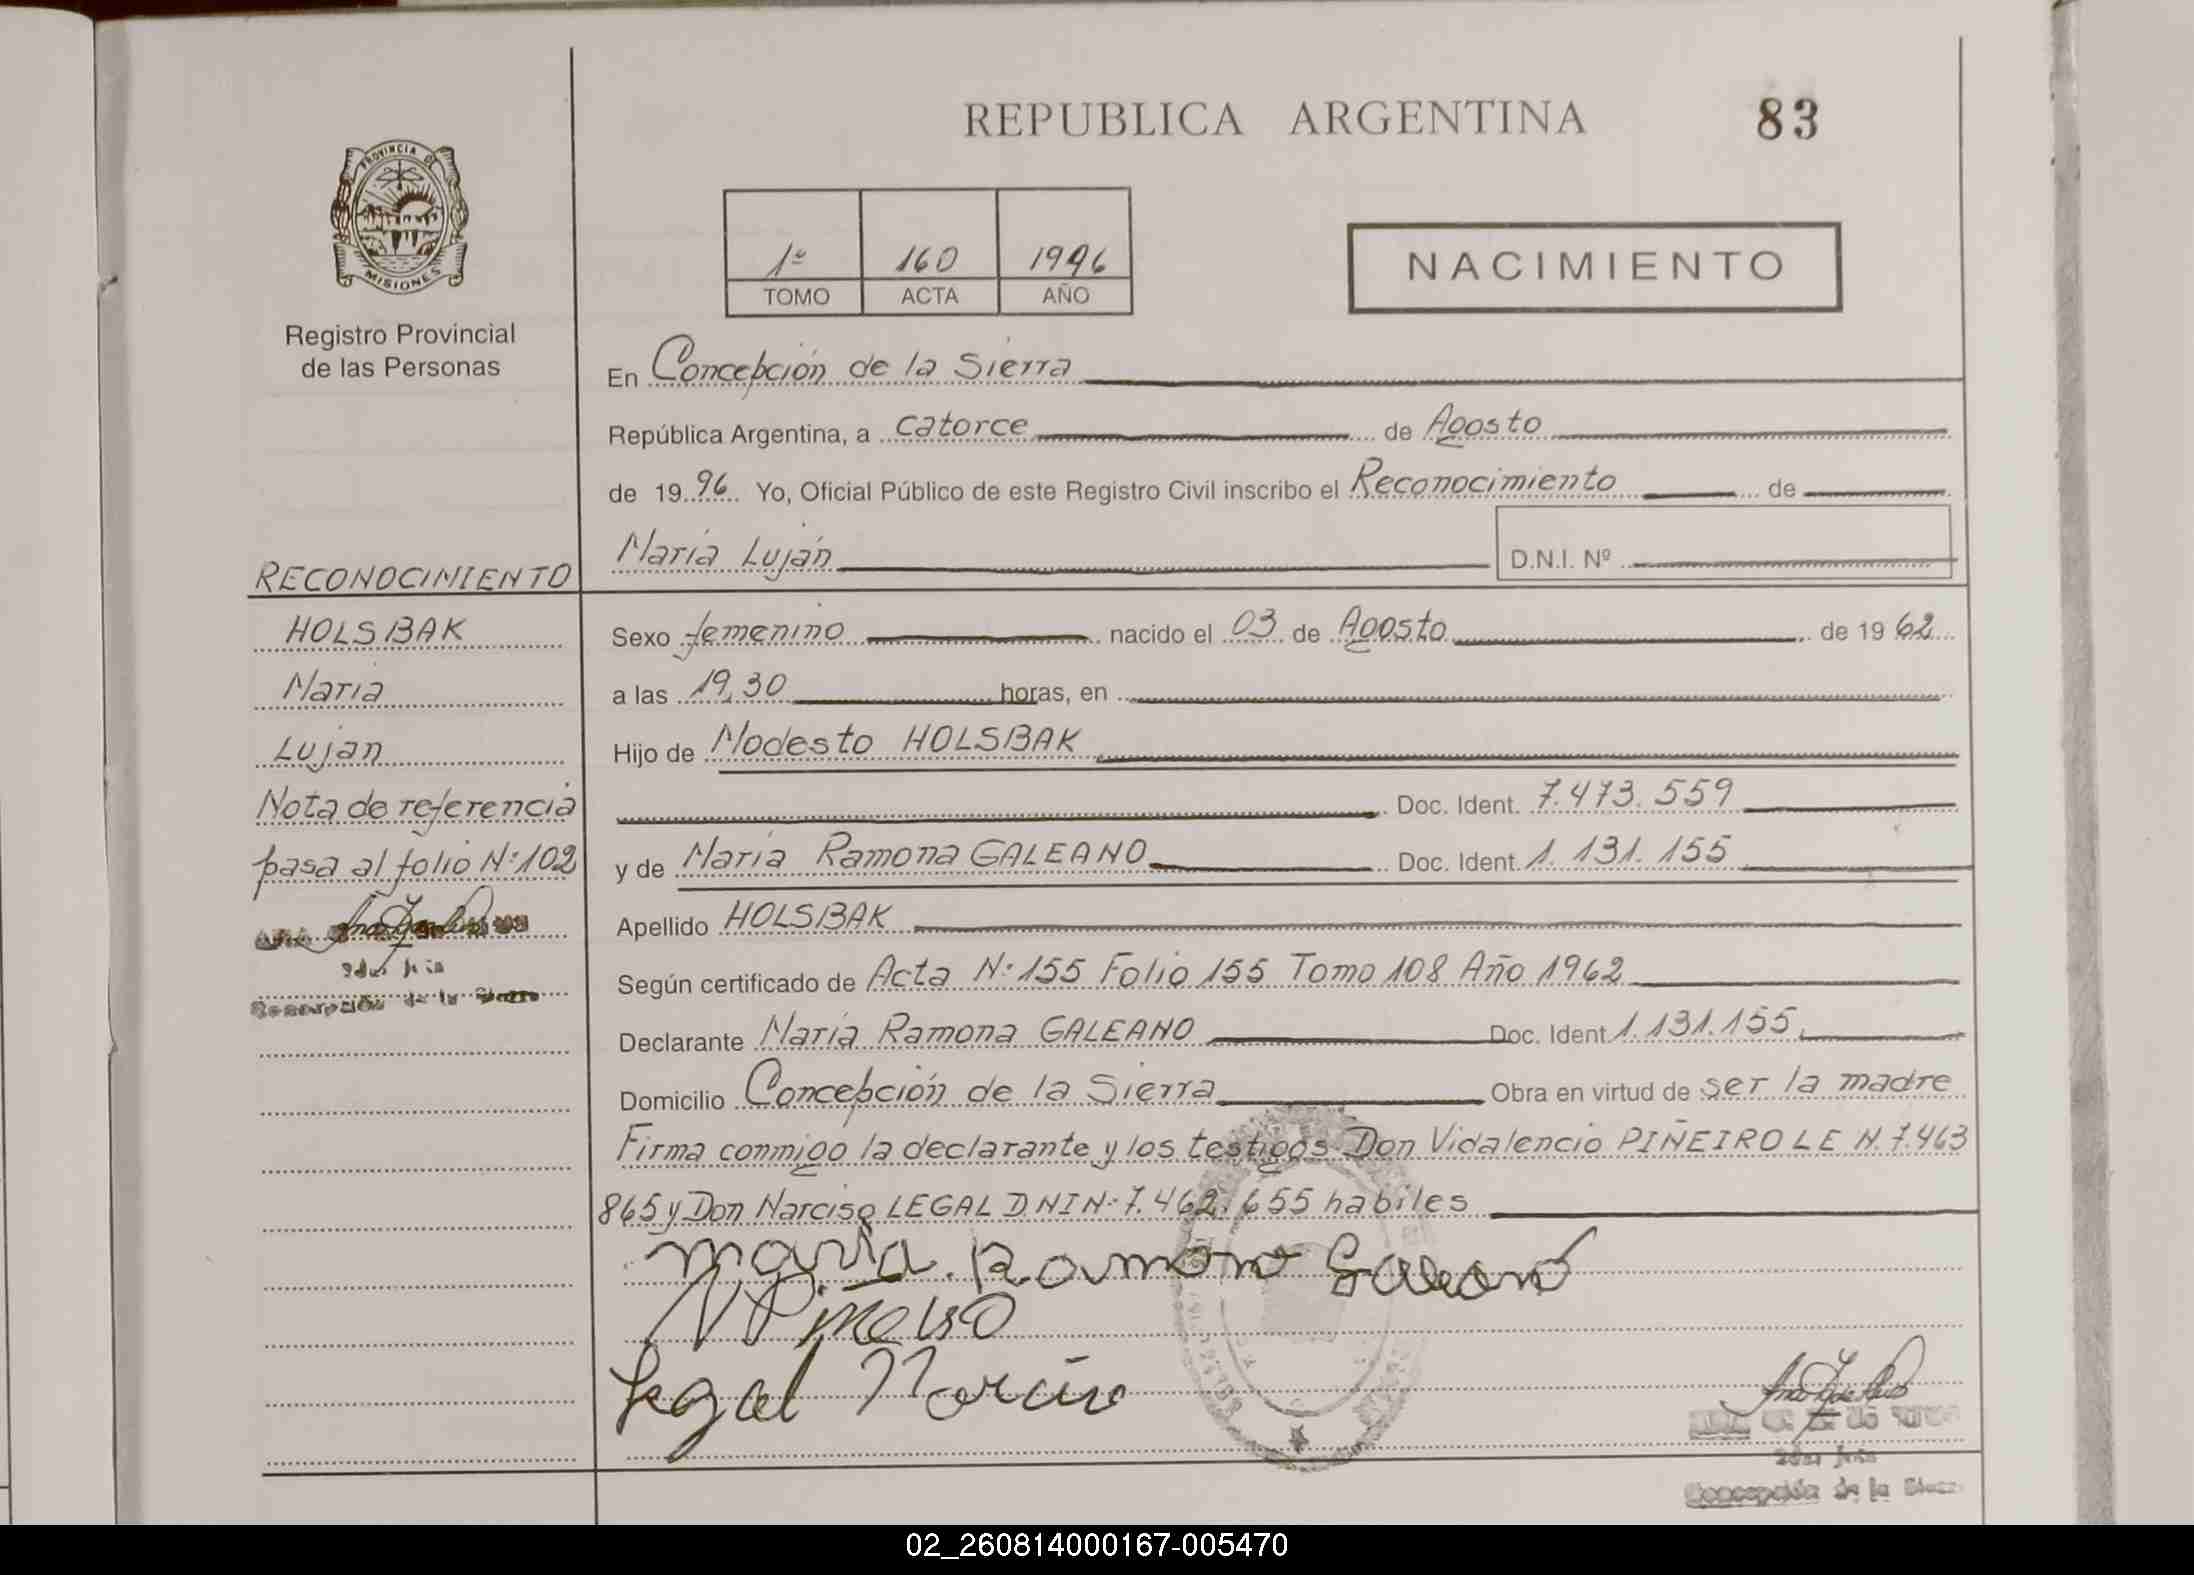 REPUBLICA ARGENTINA
83
PROVINCIA DE
MISIONES
Registro Provincial
de las Personas
1º 160 1996
TOMO ACTA AÑO
NACIMIENTO
En Concepción de la Sierra
República Argentina, a catorce de Agosto
de 19 96 Yo, Oficial Público de este Registro Civil inscribo el Reconocimiento de
María Luján D.N.I. Nº
Sexo femenino nacido el 03 de Agosto de 19 62
a las 19,30 horas, en
Hijo de Modesto HOLSBAK
Doc. Ident. 7.473.559
y de María Ramona GALEANO Doc. Ident. 1.131.155
Apellido HOLSBAK
Según certificado de Acta N: 155 Folio 155 Tomo 108 Año 1962
Declarante María Ramona GALEANO Doc. Ident 1.131.155.
Domicilio Concepción de la Sierra Obra en virtud de ser la madre
Firma conmigo la declarante y los testigos Don Vidalencio PIÑEIRO LE N. 7.463
865 y Don Narciso LEGAL D.N I N: 7.462.655 habiles
maria Ramona Galeano
Legal Narciso
Concepción de la
RECONOCIMIENTO
HOLSBAK
María
Luján
Nota de referencia
pasa al folio N: 102
Concepción de la Sierra
02_260814000167-005470